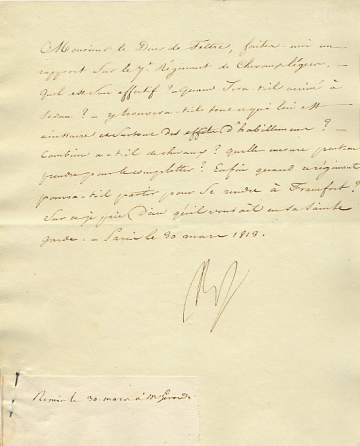 Monsieur le Duc de Feltre, faites-moi un
rapport sur le 7e Régiment de Chevaulégers. -
Quel est son effectif? - Quand sera-t-il arrivé à
Sedan? - y trouvera-t-il tout ce qui lui est
nécessaire surtout des effets d'habillement? -
Combien a-t-il de chevaux? quelle mesure peut-on
prendre pour le completter? Enfin quand ce régiment
pourra-t-il partir pour se rendre à Francfort?
Sur ce je prie Dieu qu'il vous ait en sa Sainte
garde. - Paris le 30 mars 1813.
Remis le 30 mars à Mr